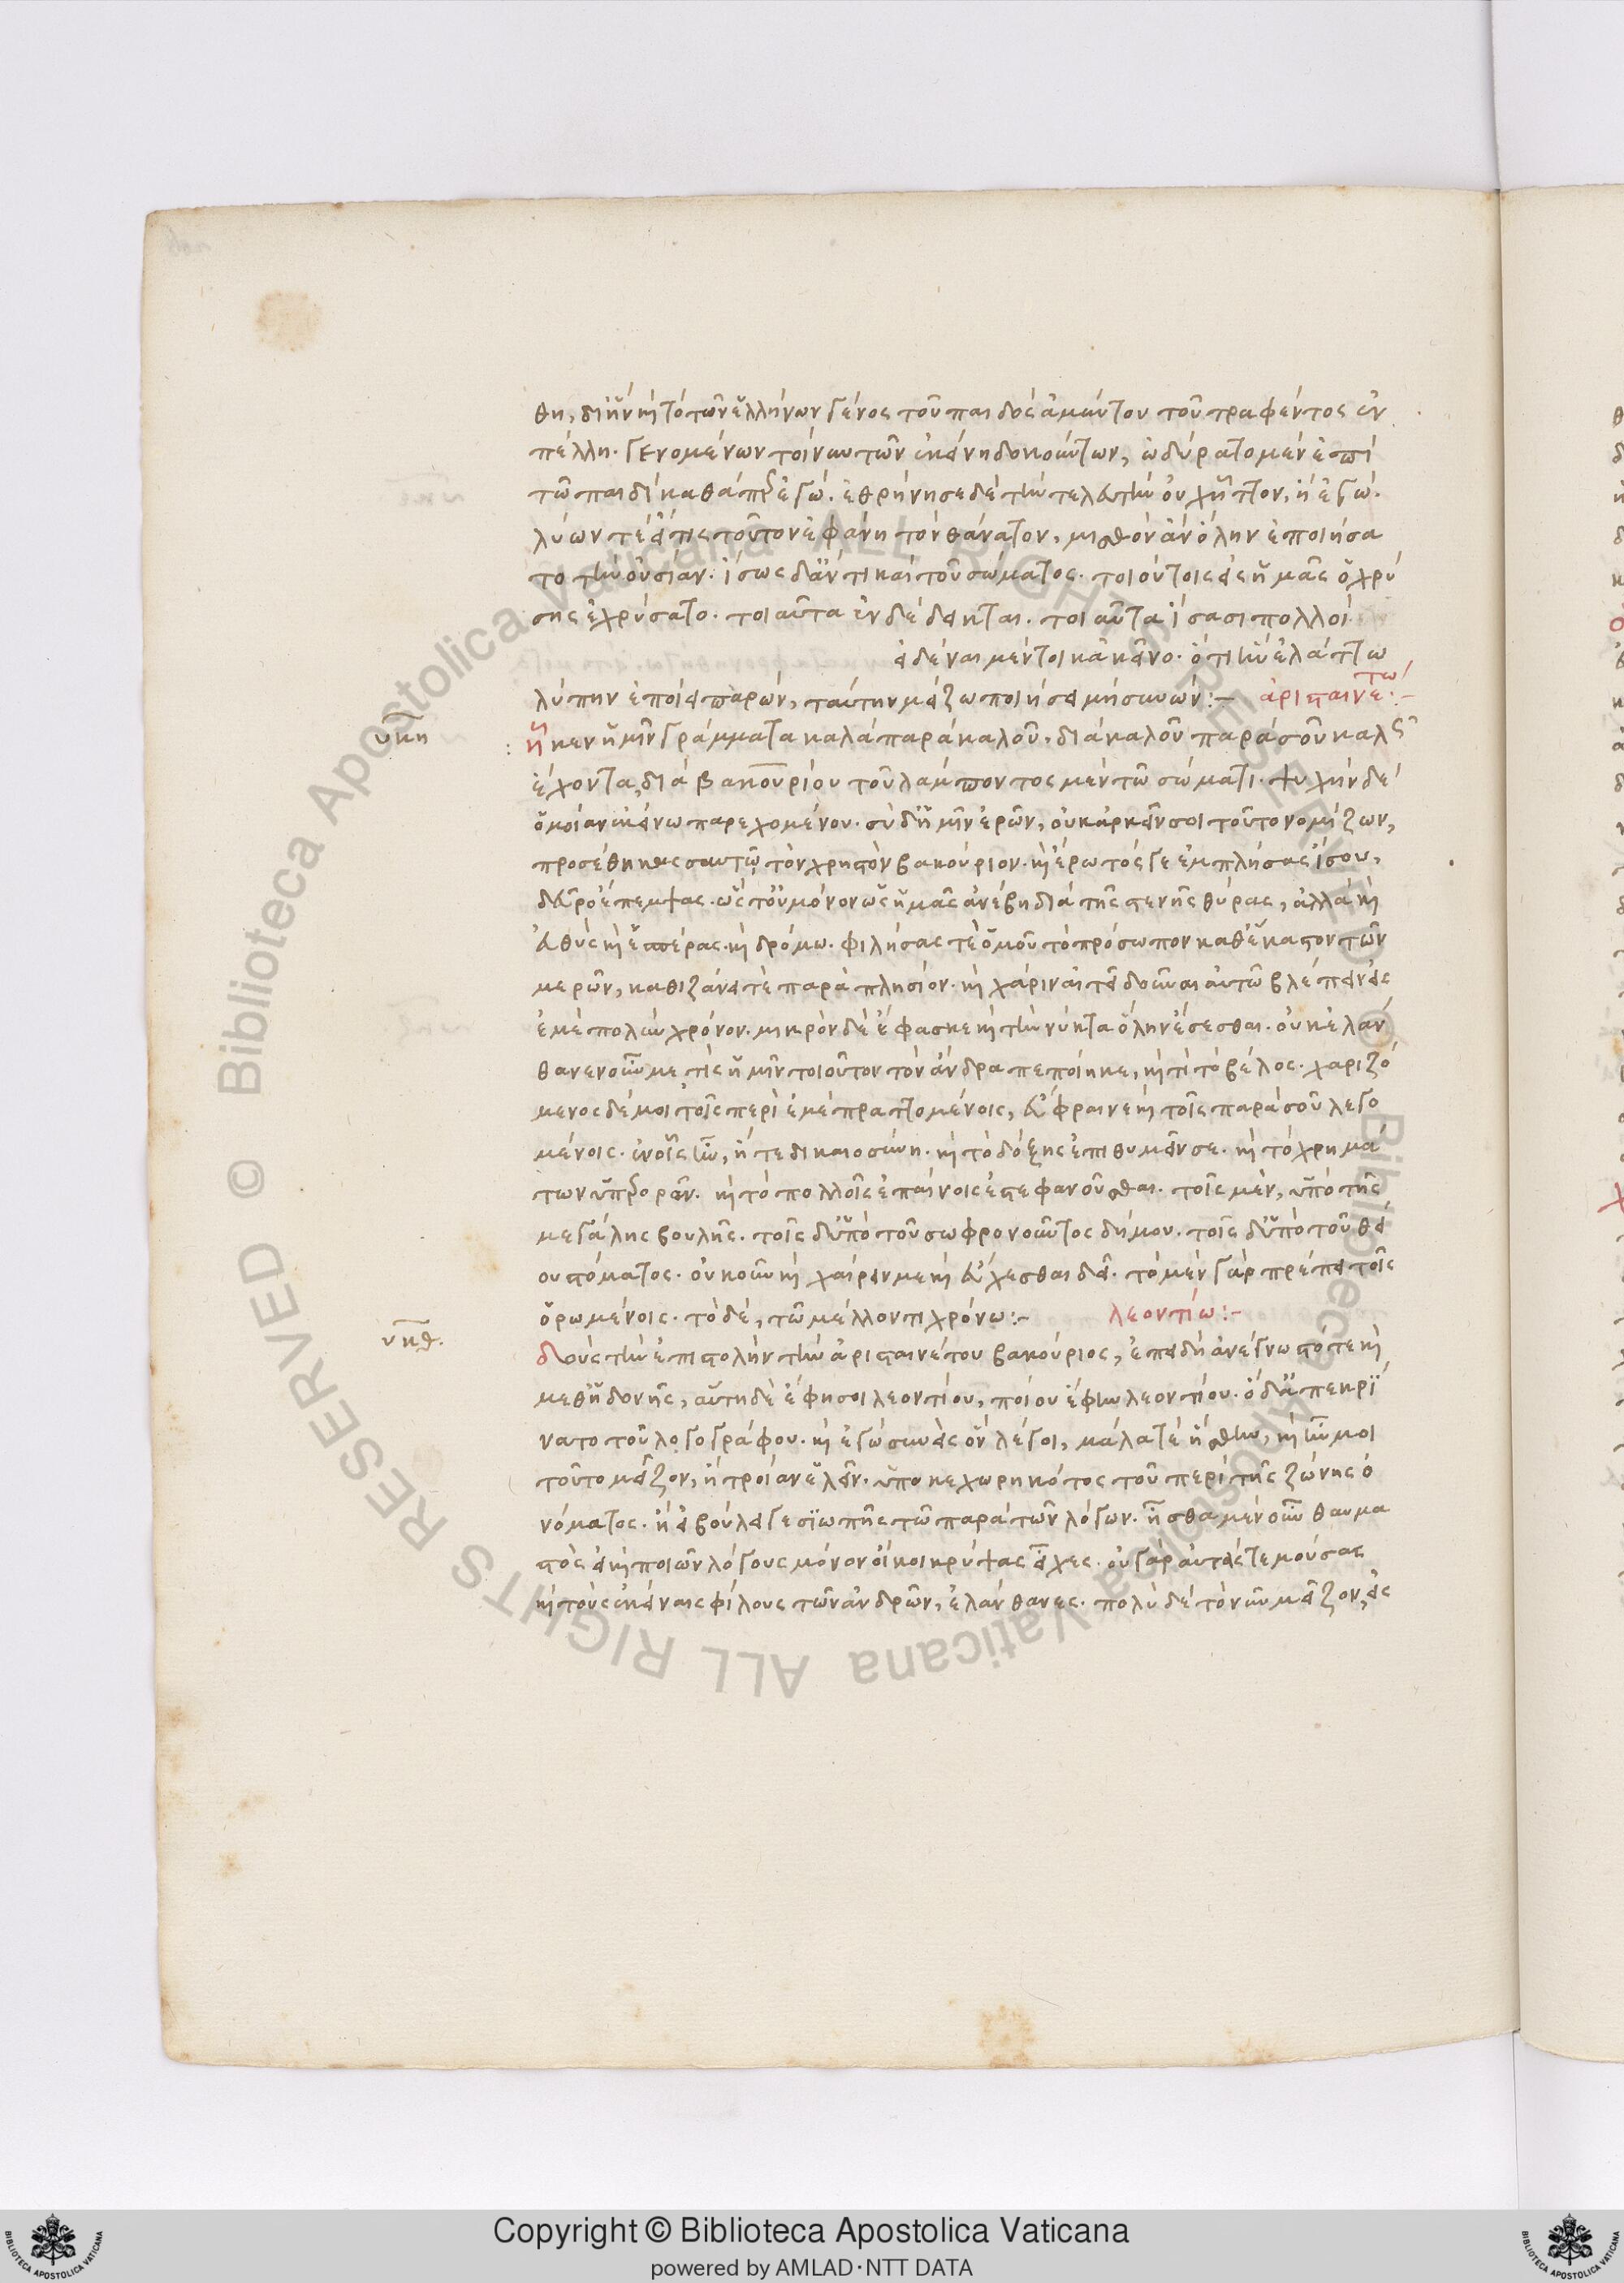 θη, δι' ἣν καὶ τὸ τῶν ἑλλήνων γένος τοῦ παιδὸς ἀμύντου τοῦ τραφέντος ἐν
πέλλη. γενομένων τοίνυν τῶν ἐκείνη δοκούντων, ὠδύρατο μὲν ἐπὶ
τῶ παιδὶ καθάπερ ἐγώ. ἐθρήνησε δὲ τὴν τελευτὴν οὐχ ἧττον, ἢ ἐγώ.
λύων τε εἴ τις τοῦτον ἐφάνη τὸν θάνατον, μισθὸν ἂν ὅλην ἐποιήσα
το τὴν οὐσίαν. ἴσως δ' ἄν τι καὶ τοῦ σώματος. τοιούτοις εἰς ἡμᾶς ὁ χρύ
σης ἐχρήσατο. τοιαῦτα ἐνδέδεικται. τοιαῦτα ἴσασι πολλοί
εἰδέναι μέντοι κἀκεῖνο. ὅτι ἣν ἐλάττω
λύπην ἐποίει παρών, ταύτην μείζω ποιήσει μὴ συνών:– ἀρισταινέτω:–
υκη ἧκεν ἡμῖν γράμματα καλὰ παρὰ καλοῦ, διὰ καλοῦ παρὰ σοῦ καλῶς
ἔχοντα, διὰ βακουρίου τοῦ λάμποντος μὲν τῶ σώματι. ψυχὴν δὲ
ὁμοίαν ἐκείνω παρεχομένου. σὺ δ' ἡμῖν ἐρῶν, οὐκ ἀρκεῖν σοι τοῦτο νομίζων,
προσέθηκας σαυτῶ τὸν χρηστὸν βακούριον. καὶ ἔρωτός γε ἐμπλήσας ἴσου,
δεῦρο ἔπεμψας. ὥς του μόνον ὡς ἡμᾶς ἀνέβη διὰ τῆς στενῆς θύρας, ἀλλὰ καὶ
εὐθὺς καὶ ἑσπέρας. καὶ δρόμω. φιλήσας τε ὁμοῦ τὸ πρόσωπον καθ' ἕκαστον τῶν
μερῶν, καθιζάνει τε παρὰ πλησίον. καὶ χάριν αἰτεῖ δοῦναι αὐτῶ βλέπειν εἰς
ἐμὲ πολὺν χρόνον. μικρὸν δὲ ἔφασκε καὶ τὴν νύκτα ὅλην ἔσεσθαι. οὐκ ἐλάν
θανεν οὖν με τίς ἡμῖν τοιοῦτον τὸν ἄνδρα πεποίηκε, καὶ τί τὸ βέλος. χαριζό
μενος δέ μοι τοῖς περὶ ἐμὲ πραττομένοις, εὔφραινε καὶ τοῖς παρὰ σοῦ λεγο
μένοις. ἐν οἷς ἦν, ἥ τε δικαιοσύνη. καὶ τὸ δόξης ἐπιθυμεῖν σε. καὶ τὸ χρημά
των ὑπερορᾶν. καὶ τὸ πολλοῖς ἐπαίνοις ἐστεφανοῦσθαι. τοῖς μὲν, ὑπὸ τῆς
μεγάλης βουλῆς. τοῖς δ' ὑπὸ τοῦ σωφρονοῦντος δήμου. τοῖς δ' ὑπὸ τοῦ θεί
ου στόματος. οὐκοῦν καὶ χαίρειν με καὶ εὔχεσθαι δεῖ. τὸ μὲν γὰρ πρέπει τοῖς
ὁρωμένοις. τὸ δὲ, τῶ μέλλοντι χρόνω:– λεοντίω:–
υκθ. δοὺς τὴν ἐπιστολὴν τὴν ἀρισταινέτου βακούριος, ἐπειδὴ ἀνέγνωστό τε καὶ
μεθ' ἡδονῆς, αὕτη δὲ ἔφη σοι λεοντίου, ποίου ἔφην λεοντίου. ὁ δ' ἀπεκρί
νατο τοῦ λογογράφου. καὶ ἐγὼ συνεὶς ὃν λέγοι, μάλα τε ἥσθην, καὶ ἦν μοι
τοῦτο μεῖζον, ἢ τροίαν ἑλεῖν. ὑποκεχωρηκότος τοῦ περὶ τῆς ζώνης ὀ
νόματος. ἢ εἰ βούλει γε σιωπῆς τῶ παρὰ τῶν λόγων. ἦσθα μὲν οὖν θαυμα
στὸς εἰ καὶ ποιῶν λόγους μόνον οἴκοι κρύψας εἶχες. οὐ γὰρ αὐτάς τε μούσας
καὶ τοὺς ἐκείναις φίλους τῶν ἀνδρῶν, ἐλάνθανες. πολὺ δὲ τὸ νῦν μεῖζον, εἰς
Copyright © Biblioteca Apostolica Vaticana
powered by AMLAD·NTT DATA